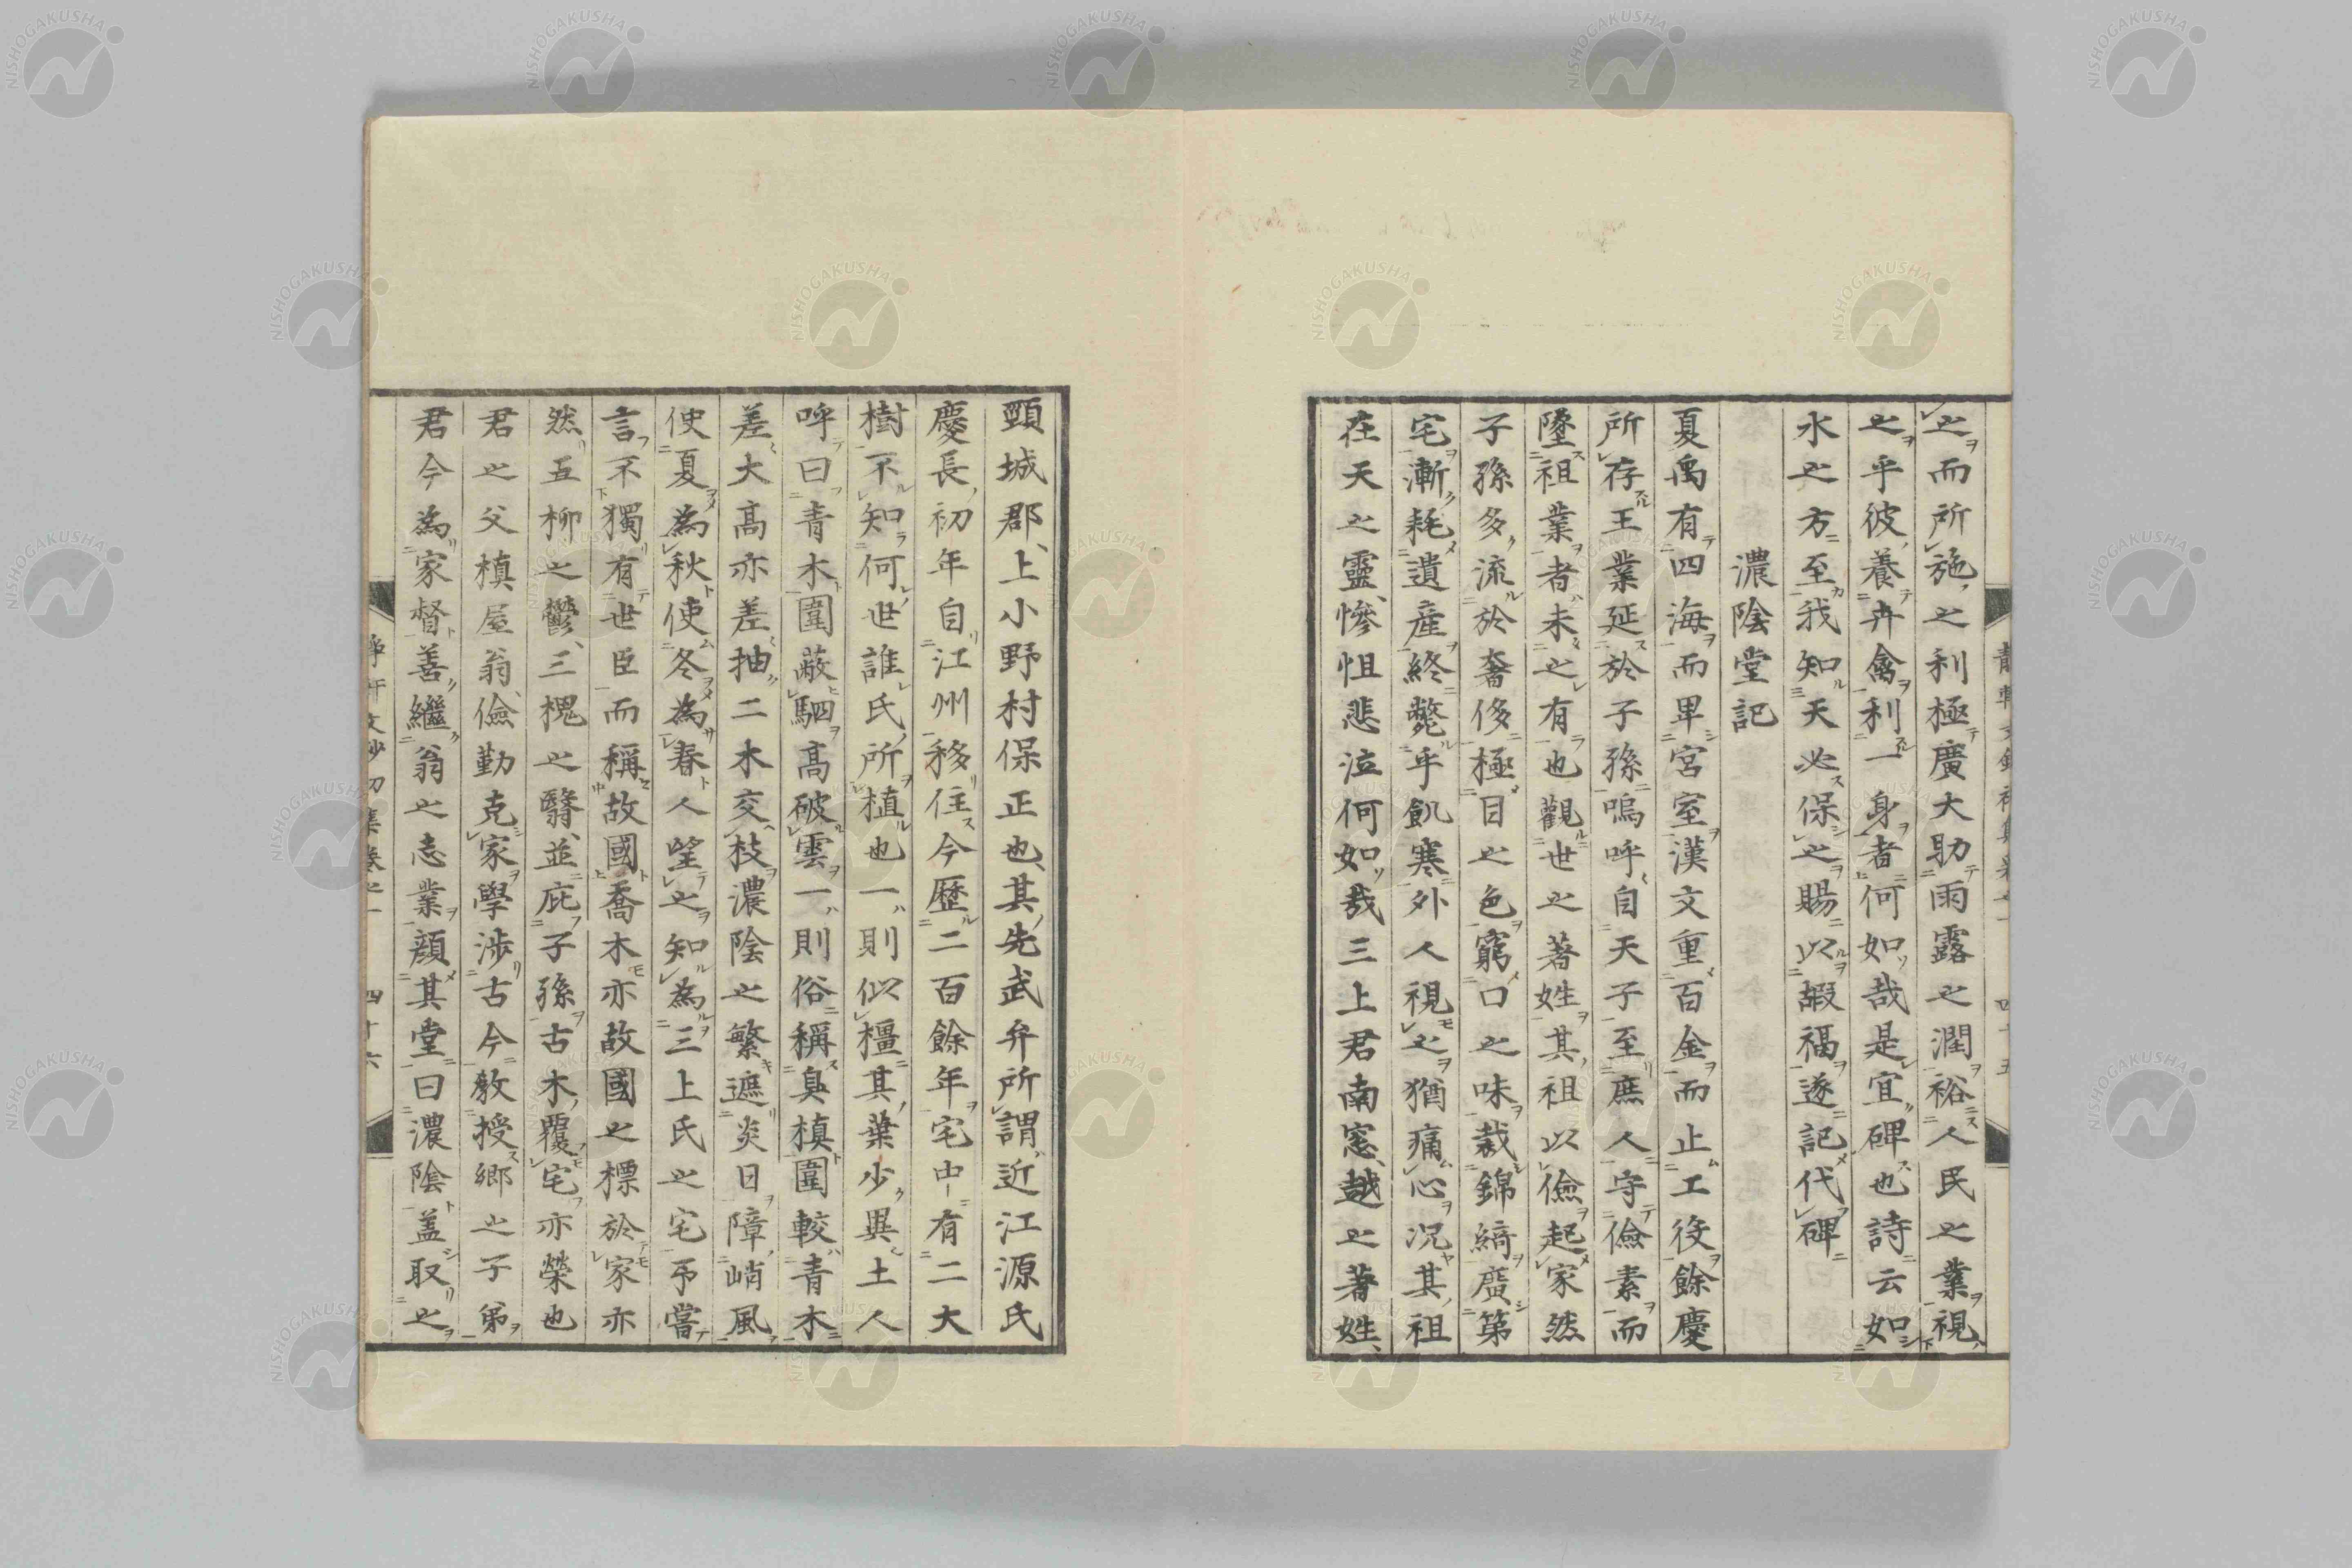 之而所施之利極廣大助雨露之潤裕人民之業視
之乎彼養卉禽利一身者何如哉是宜碑也詩云如
水之方至我知天必保之賜以嘏福遂記代碑
濃陰堂記
夏禹有四海而卑宮室漢文重百金而止工役餘慶
所存王業延於子孫嗚呼自天子至庶人守儉素而
墜祖業者未之有也觀世之著姓其祖以儉起家然
子孫多流於奢侈極目之色窮口之味裁錦綺廣第
宅漸耗遺産終斃乎飢寒外人視之猶痛心況其祖
在天之靈惨怛悲泣何如哉三上君南窓越之著姓
頸城郡上小野村保正也其先武弁所謂近江源氏
慶長初年自江州移住今歷二百餘年宅中有二大
樹不知何世誰氏所植也一則似橿其葉少異土人
呼曰青木圍蔽駟高破雲一則俗稱臭槙圍較青木
差大高亦差抽二木交枝濃陰之繁遮炎日障峭風
使夏為秋使冬為春人望之知為三上氏之宅予嘗
言不獨有世臣而稱故國喬木亦故國之標於家亦
然五柳之鬱三槐之翳並庇子孫古木覆宅亦榮也
君之父槙屋翁儉勤克家學渉古今教授鄉之子弟
君今為家督善繼翁之志業顔其堂曰濃陰蓋取之
四十六
NISHOGAKUSHA